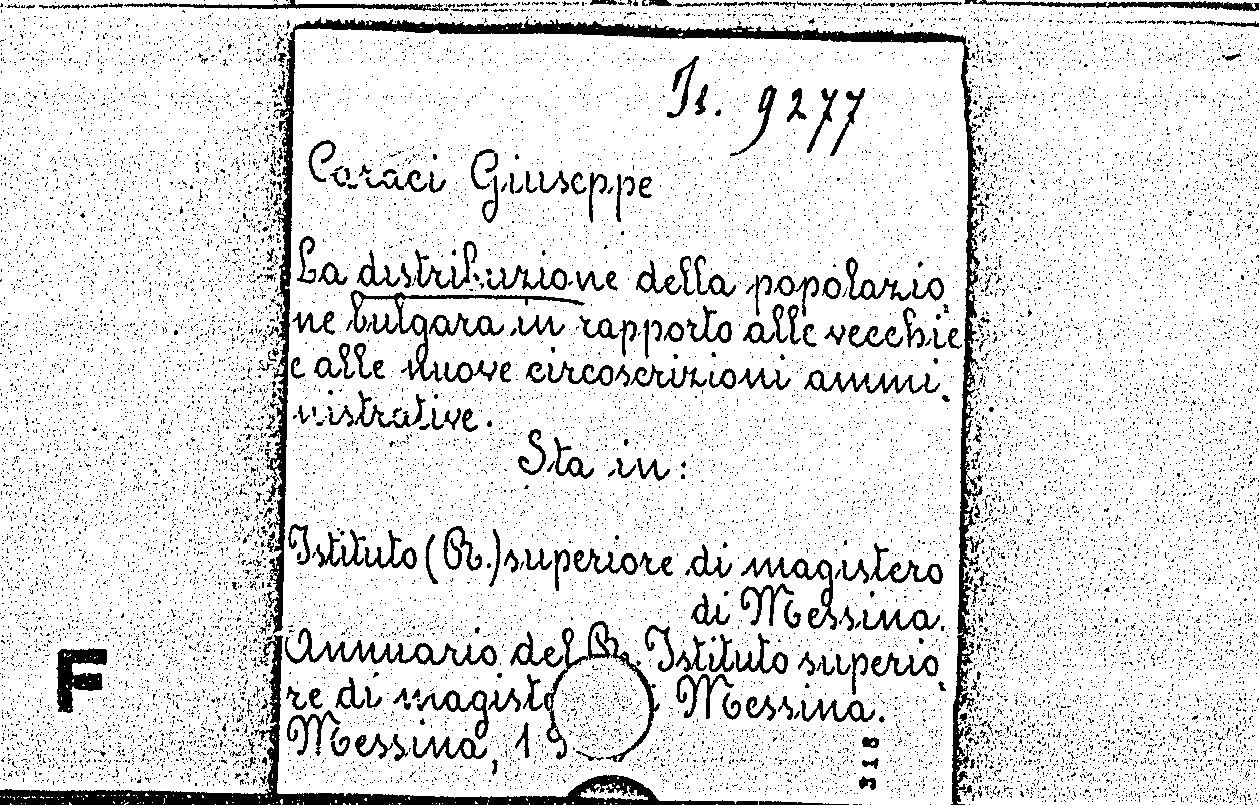 Is. 9277
Caraci Giuseppe
La distribuzione della popolazio.
ne bulgara in rapporto alle vecchie
e alle nuove circoscrizioni ammi.
nistrative.
Sta in:
Istituto (R.) superiore di magistero
di Messina.
Annuario del R. Istituto superio.
re di magiste i Messina.
Messina, 19
F
318